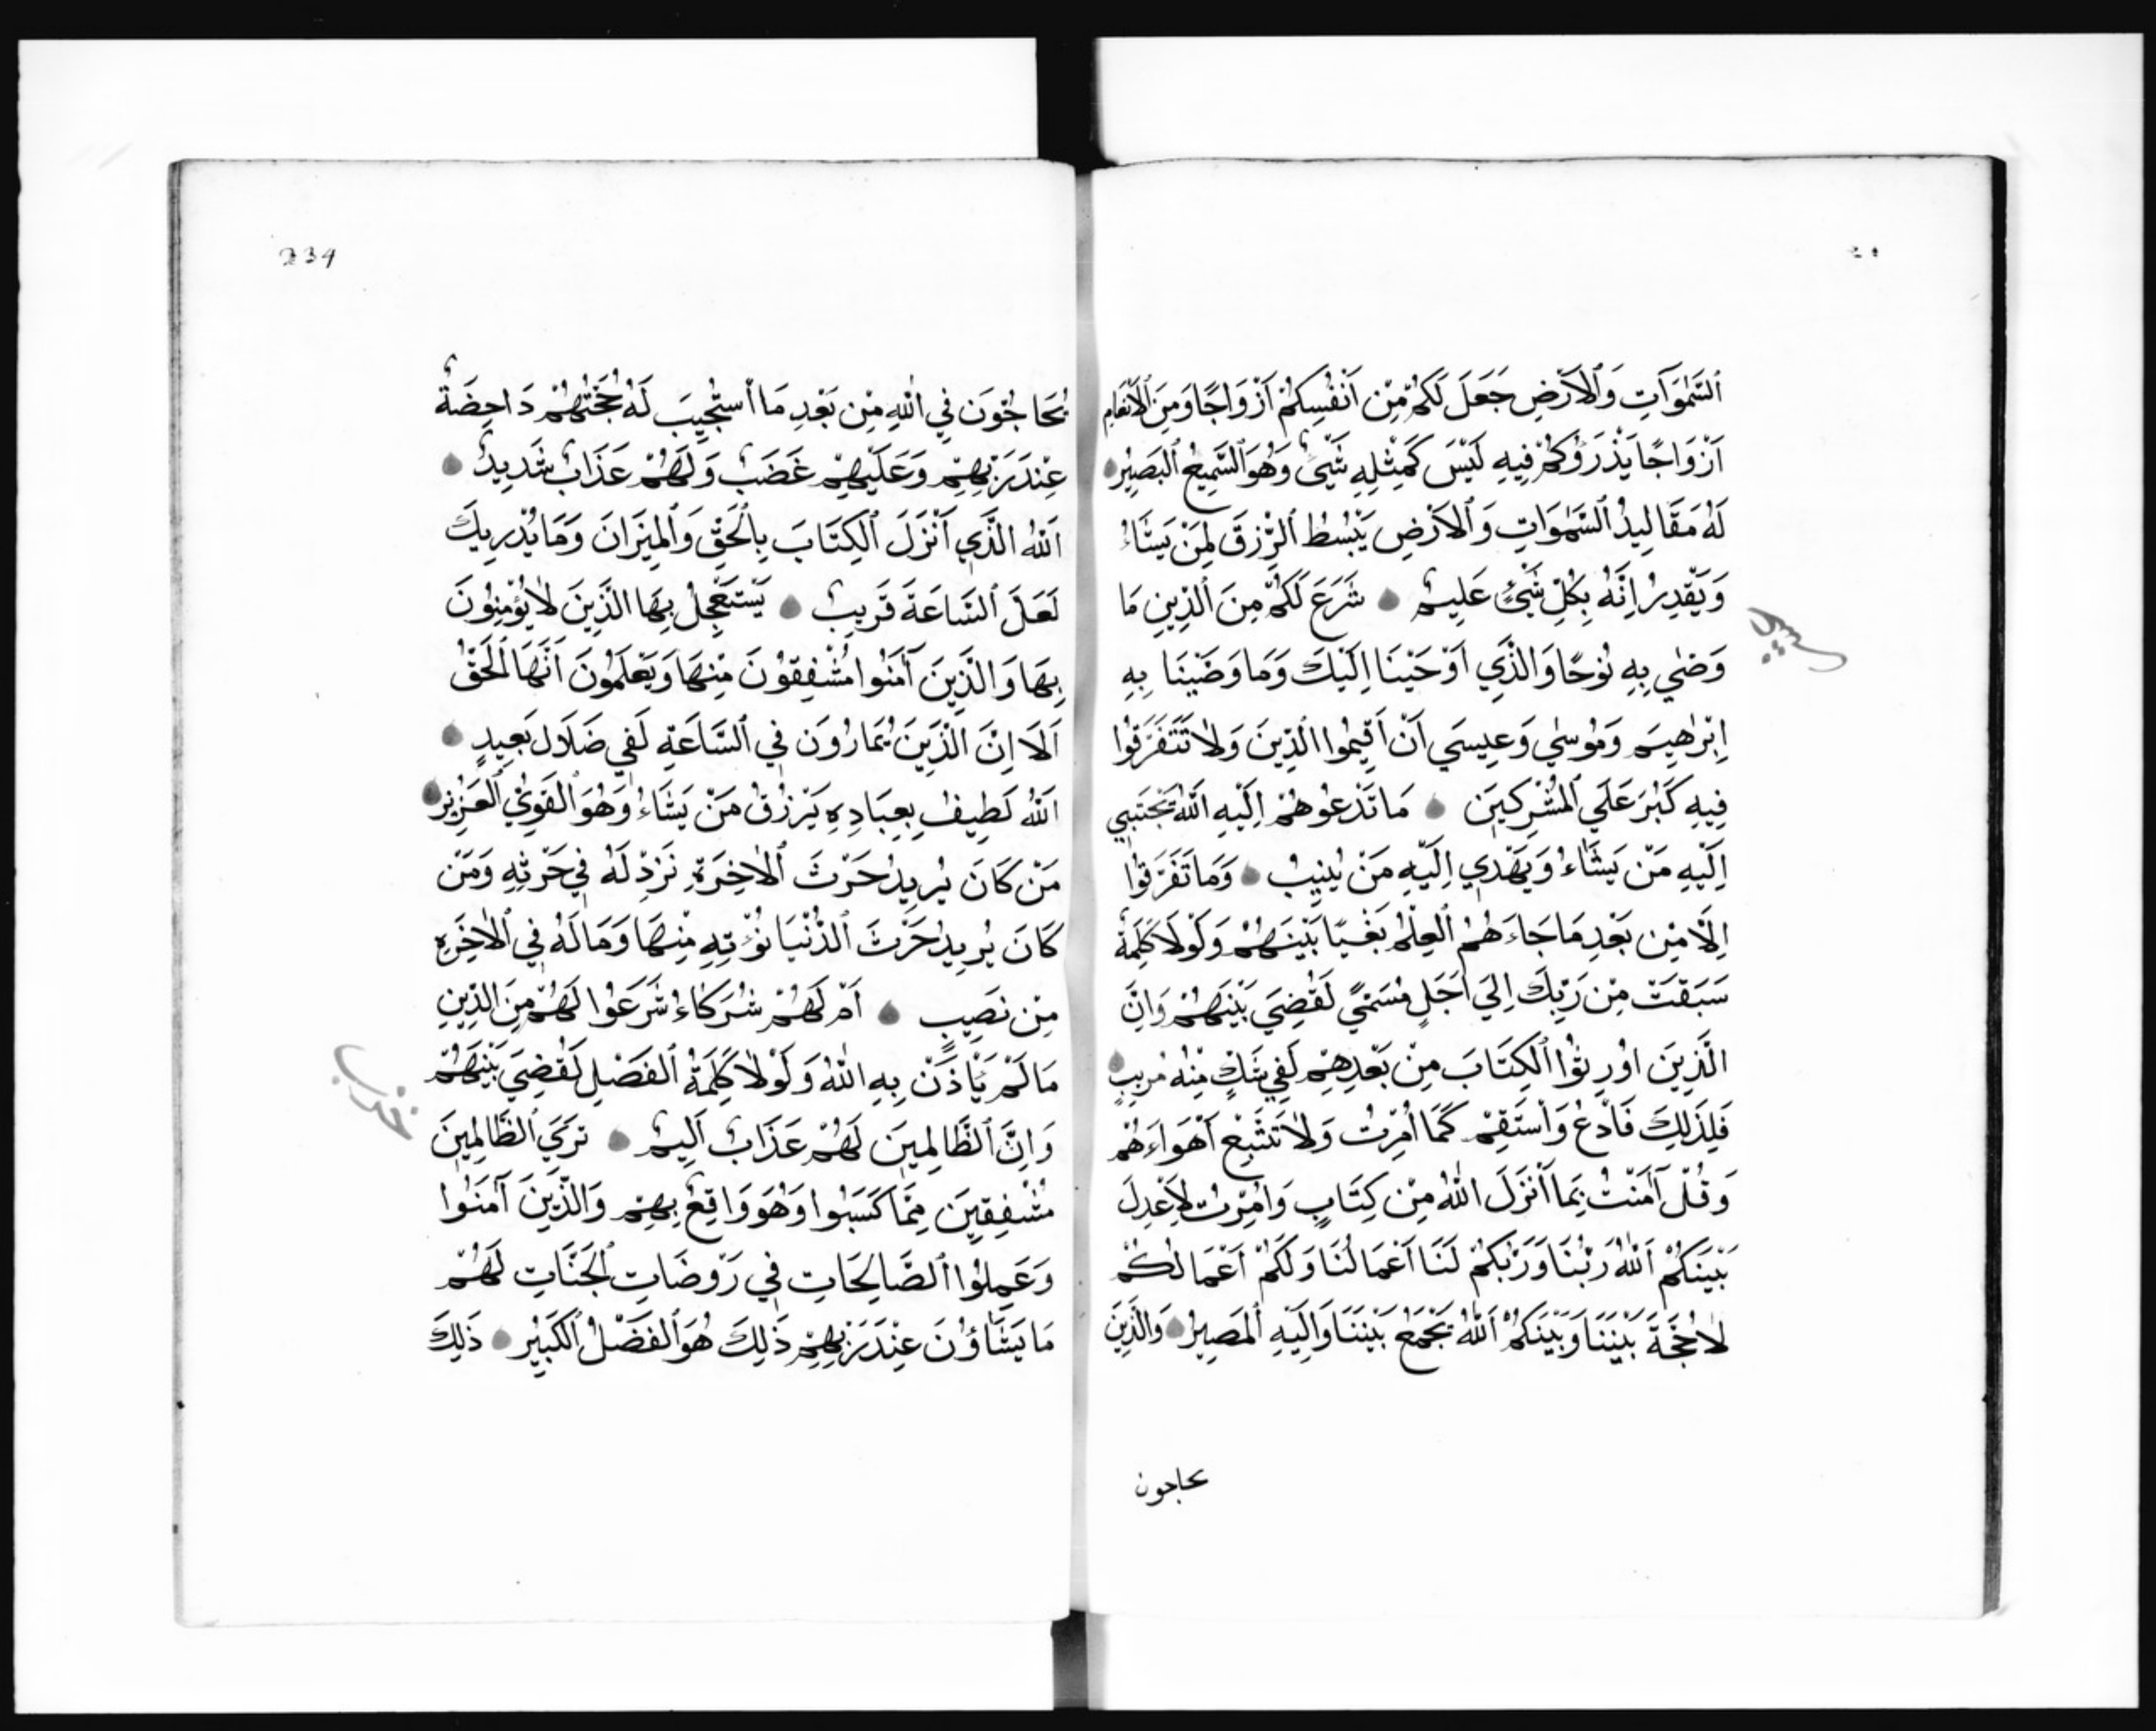 ٱلسَّمٰوَاتِ وَٱلْأَرْضِ جَعَلَ لَكُمْ مِنْ أَنْفُسِكُمْ أَزْوَاجًا وَمِنَ ٱلْأَنْعَامِ
أَزْوَاجًا يَذْرَؤُكُمْ فِيهِ لَيْسَ كَمِثْلِهِ شَيْئٌ وَهُوَ ٱلسَّمِيعُ ٱلْبَصِيرُ
لَهُ مَقَالِيدُ ٱلسَّمٰوَاتِ وَٱلْأَرْضِ يَبْسُطُ ٱلرِّزْقَ لِمَنْ يَشَاءُ
وَيَقْدِرُ إِنَّهُ بِكُلِّ شَيْئٍ عَلِيمٌ شَرَعَ لَكُمْ مِنَ ٱلدِّينِ مَا
وَصّٰي بِهِ نُوحًا وَالَّذِي أَوْحَيْنَا إِلَيْكَ وَمَا وَصَّيْنَا بِهِ
إِبْرٰهِيمَ وَمُوسٰي وَعِيسَي أَنْ أَقِيمُوا الدِّينَ وَلَا تَتَفَرَّقُوا
فِيهِ كَبُرَ عَلَي ٱلْمُشْرِكِينَ مَا تَدْعُوهُمْ إِلَيْهِ اَللّٰهُ يَجْتَبِي
إِلَيْهِ مَنْ يَشَاءُ وَيَهْدِي إِلَيْهِ مَنْ يُنِيبُ وَمَا تَفَرَّقُوا
إِلَّا مِنْ بَعْدِ مَا جَاءَهُمُ ٱلْعِلْمُ بَغْيًا بَيْنَهُمْ وَلَوْلَا كَلِمَةٌ
سَبَقَتْ مِنْ رَبِّكَ إِلَي أَجَلٍ مُسَمًّي لَقُضِيَ بَيْنَهُمْ وَإِنَّ
الَّذِينَ أُورِثُوا ٱلْكِتَابَ مِنْ بَعْدِهِمْ لَفِي شَكٍّ مِنْهُ مُرِيبٍ
فَلِذَلِكَ فَادْعُ وَٱسْتَقِمْ كَمَا أُمِرْتَ وَلَا تَتَّبِعْ أَهْوَاءَهُمْ
وَقُلْ آمَنْتُ بِمَا أَنْزَلَ اللّٰهُ مِنْ كِتَابٍ وَأُمِرْتُ لِأَعْدِلَ
بَيْنَكُمْ اَللّٰهُ رَبُّنَا وَرَبُّكُمْ لَنَا أَعْمَالُنَا وَلَكُمْ أَعْمَالُكُمْ
لَا حُجَّةَ بَيْنَنَا وَبَيْنَكُمْ اَللّٰهُ يَجْمَعُ بَيْنَنَا وَإِلَيْهِ ٱلْمَصِيرُ وَالَّذِينَ
يحاجون
234
يُحَاجُّونَ فِي اللّٰهِ مِنْ بَعْدِ مَا ٱسْتُجِيبَ لَهُ حُجَّتُهُمْ دَاحِضَةٌ
عِنْدَ رَبِّهِمْ وَعَلَيْهِمْ غَضَبٌ وَلَهُمْ عَذَابٌ شَدِيدٌ
اَللّٰهُ الَّذِي أَنْزَلَ ٱلْكِتَابَ بِالْحَقِّ وَٱلْمِيزَانَ وَمَا يُدْرِيكَ
لَعَلَّ ٱلسَّاعَةَ قَرِيبٌ يَسْتَعْجِلُ بِهَا الَّذِينَ لَا يُؤْمِنُونَ
بِهَا وَالَّذِينَ آمَنُوا مُشْفِقُونَ مِنْهَا وَيَعْلَمُونَ أَنَّهَا ٱلْحَقُّ
أَلَا إِنَّ الَّذِينَ يُمَارُونَ فِي ٱلسَّاعَةِ لَفِي ضَلَالٍ بَعِيدٍ
اَللّٰهُ لَطِيفٌ بِعِبَادِهِ يَرْزُقُ مَنْ يَشَاءُ وَهُوَ ٱلْقَوِيُّ ٱلْعَزِيزُ
مَنْ كَانَ يُرِيدُ حَرْثَ ٱلْأٰخِرَةِ نَزِدْ لَهُ فِي حَرْثِهِ وَمَنْ
كَانَ يُرِيدُ حَرْثَ ٱلدُّنْيَا نُؤْتِهِ مِنْهَا وَمَا لَهُ فِي ٱلْأٰخِرَةِ
مِنْ نَصِيبٍ أَمْ لَهُمْ شُرَكَاءُ شَرَعُوا لَهُمْ مِنَ الدِّينِ
مَا لَمْ يَأْذَنْ بِهِ اللّٰهُ وَلَوْلَا كَلِمَةُ ٱلْفَصْلِ لَقُضِيَ بَيْنَهُمْ
وَإِنَّ ٱلظَّالِمِينَ لَهُمْ عَذَابٌ أَلِيمٌ تَرَي ٱلظَّالِمِينَ
مُشْفِقِينَ مِمَّا كَسَبُوا وَهُوَ وَاقِعٌ بِهِمْ وَالَّذِينَ آمَنُوا
وَعَمِلُوا ٱلصَّالِحَاتِ فِي رَوْضَاتِ ٱلْجَنَّاتِ لَهُمْ
مَا يَشَاؤُنَ عِنْدَ رَبِّهِمْ ذَلِكَ هُوَ ٱلْفَضْلُ ٱلْكَبِيرُ ذَلِكَ
حزب